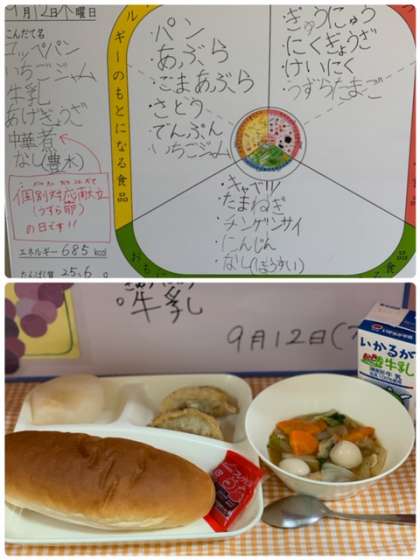 9月12日火曜日
こんだて名
コッペパン
いちごジャム
牛乳
あげぎょうざ
中華煮
なし(豊水)
個別対応献立
(うずら卵)
の日です!!
エネルギー 685 kcal
たんぱく質 25.6 g
ルギーのもとになる食品
・パン
・あぶら
・ごまあぶら
・さとう
・でんぷん
・いちごジャム
・ぎゅうにゅう
・にくぎょうざ
・けいにく
・うずらたまご
・キャベツ
・たまねぎ
・チンゲンサイ
・にんじん
・なし(ほうすい)
。牛乳
9月12日(
いかるが
牛乳